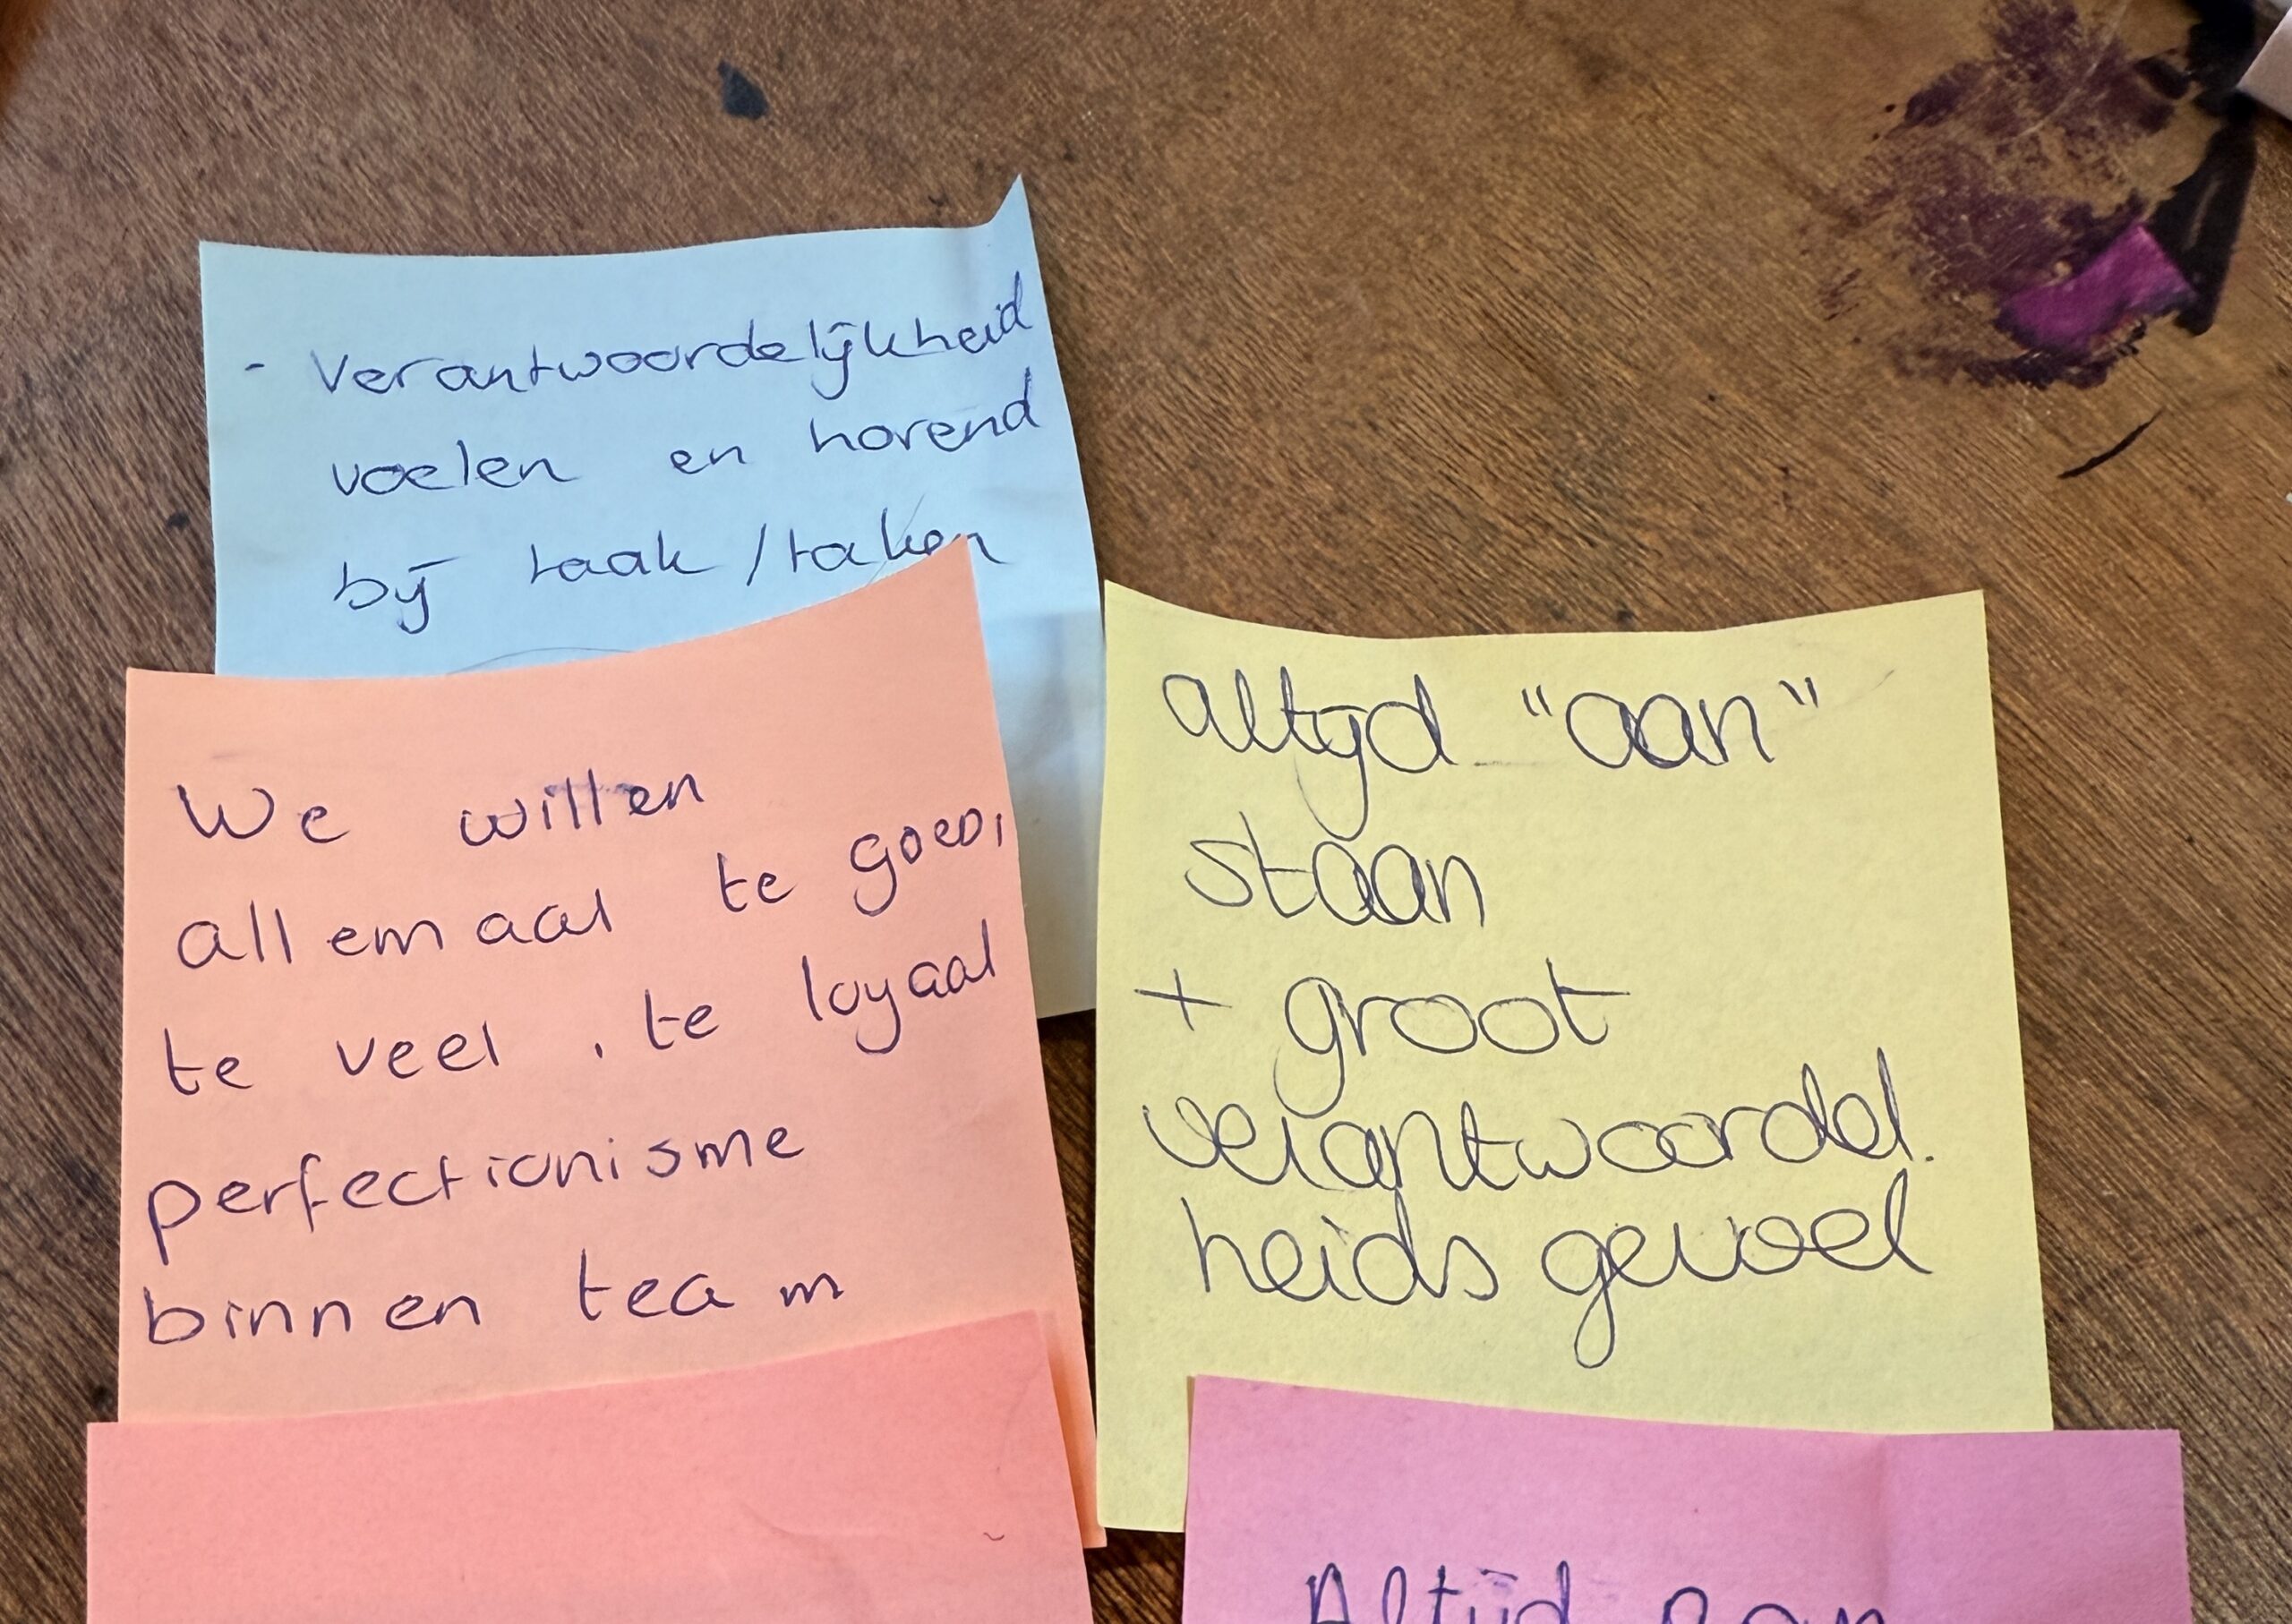 - Verantwoordelijkheid
voelen en horend
bij taak / taken
We willen
allemaal te goed,
te veel, te loyaal
perfectionisme
binnen team
altijd "aan"
staan
+ groot
verantwoordel.
heids gevoel
Altijd aan